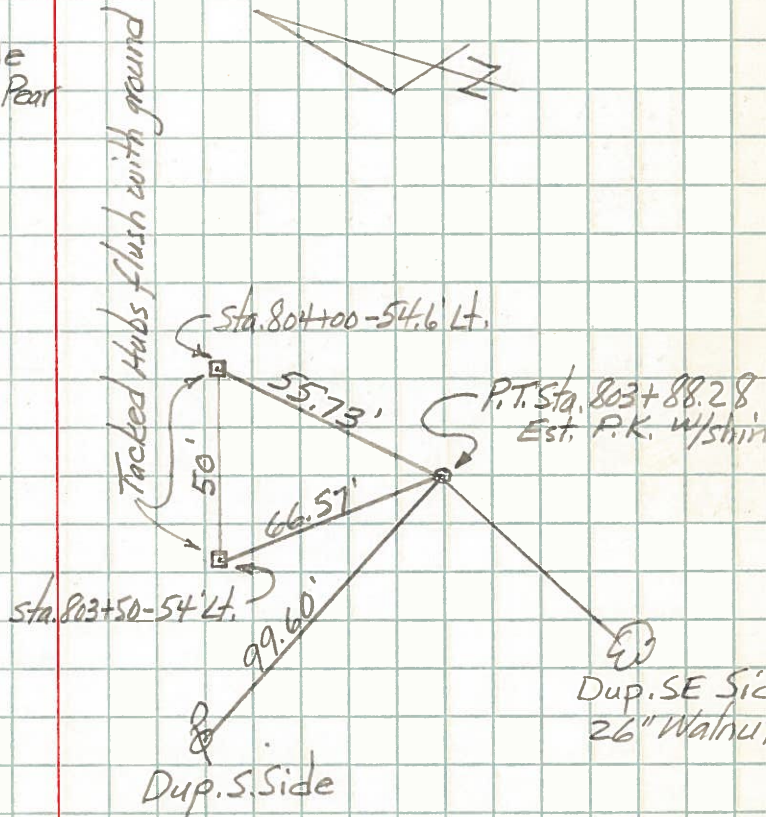 e
Pear
N
Tacked Hubs flush with ground
Sta. 804+00-54.6' Lt.
55.73'
P.T. Sta. 803+88.28
Est. P.K. w/shin
50'
66.57'
Sta. 803+50-54' Lt.
99.60'
Dup. SE Sid
26" Walnu
Dup. S. Side